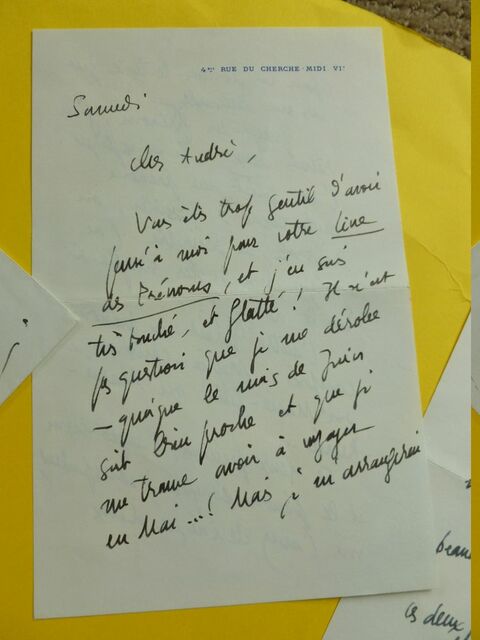 4bis RUE DU CHERCHE-MIDI VIe
Samedi
Cher André,
Vous êtes trop gentil d'avoir
pensé à moi pour votre Livre
des Prénoms, et j'en suis
très touché, et flatté! Il n'est
pas question que je me dérobe
- quoique le mois de Juin
soit bien proche et que je
me trouve avoir à voyager
en Mai...! Mais je m'arrangerai
beau
ces deux